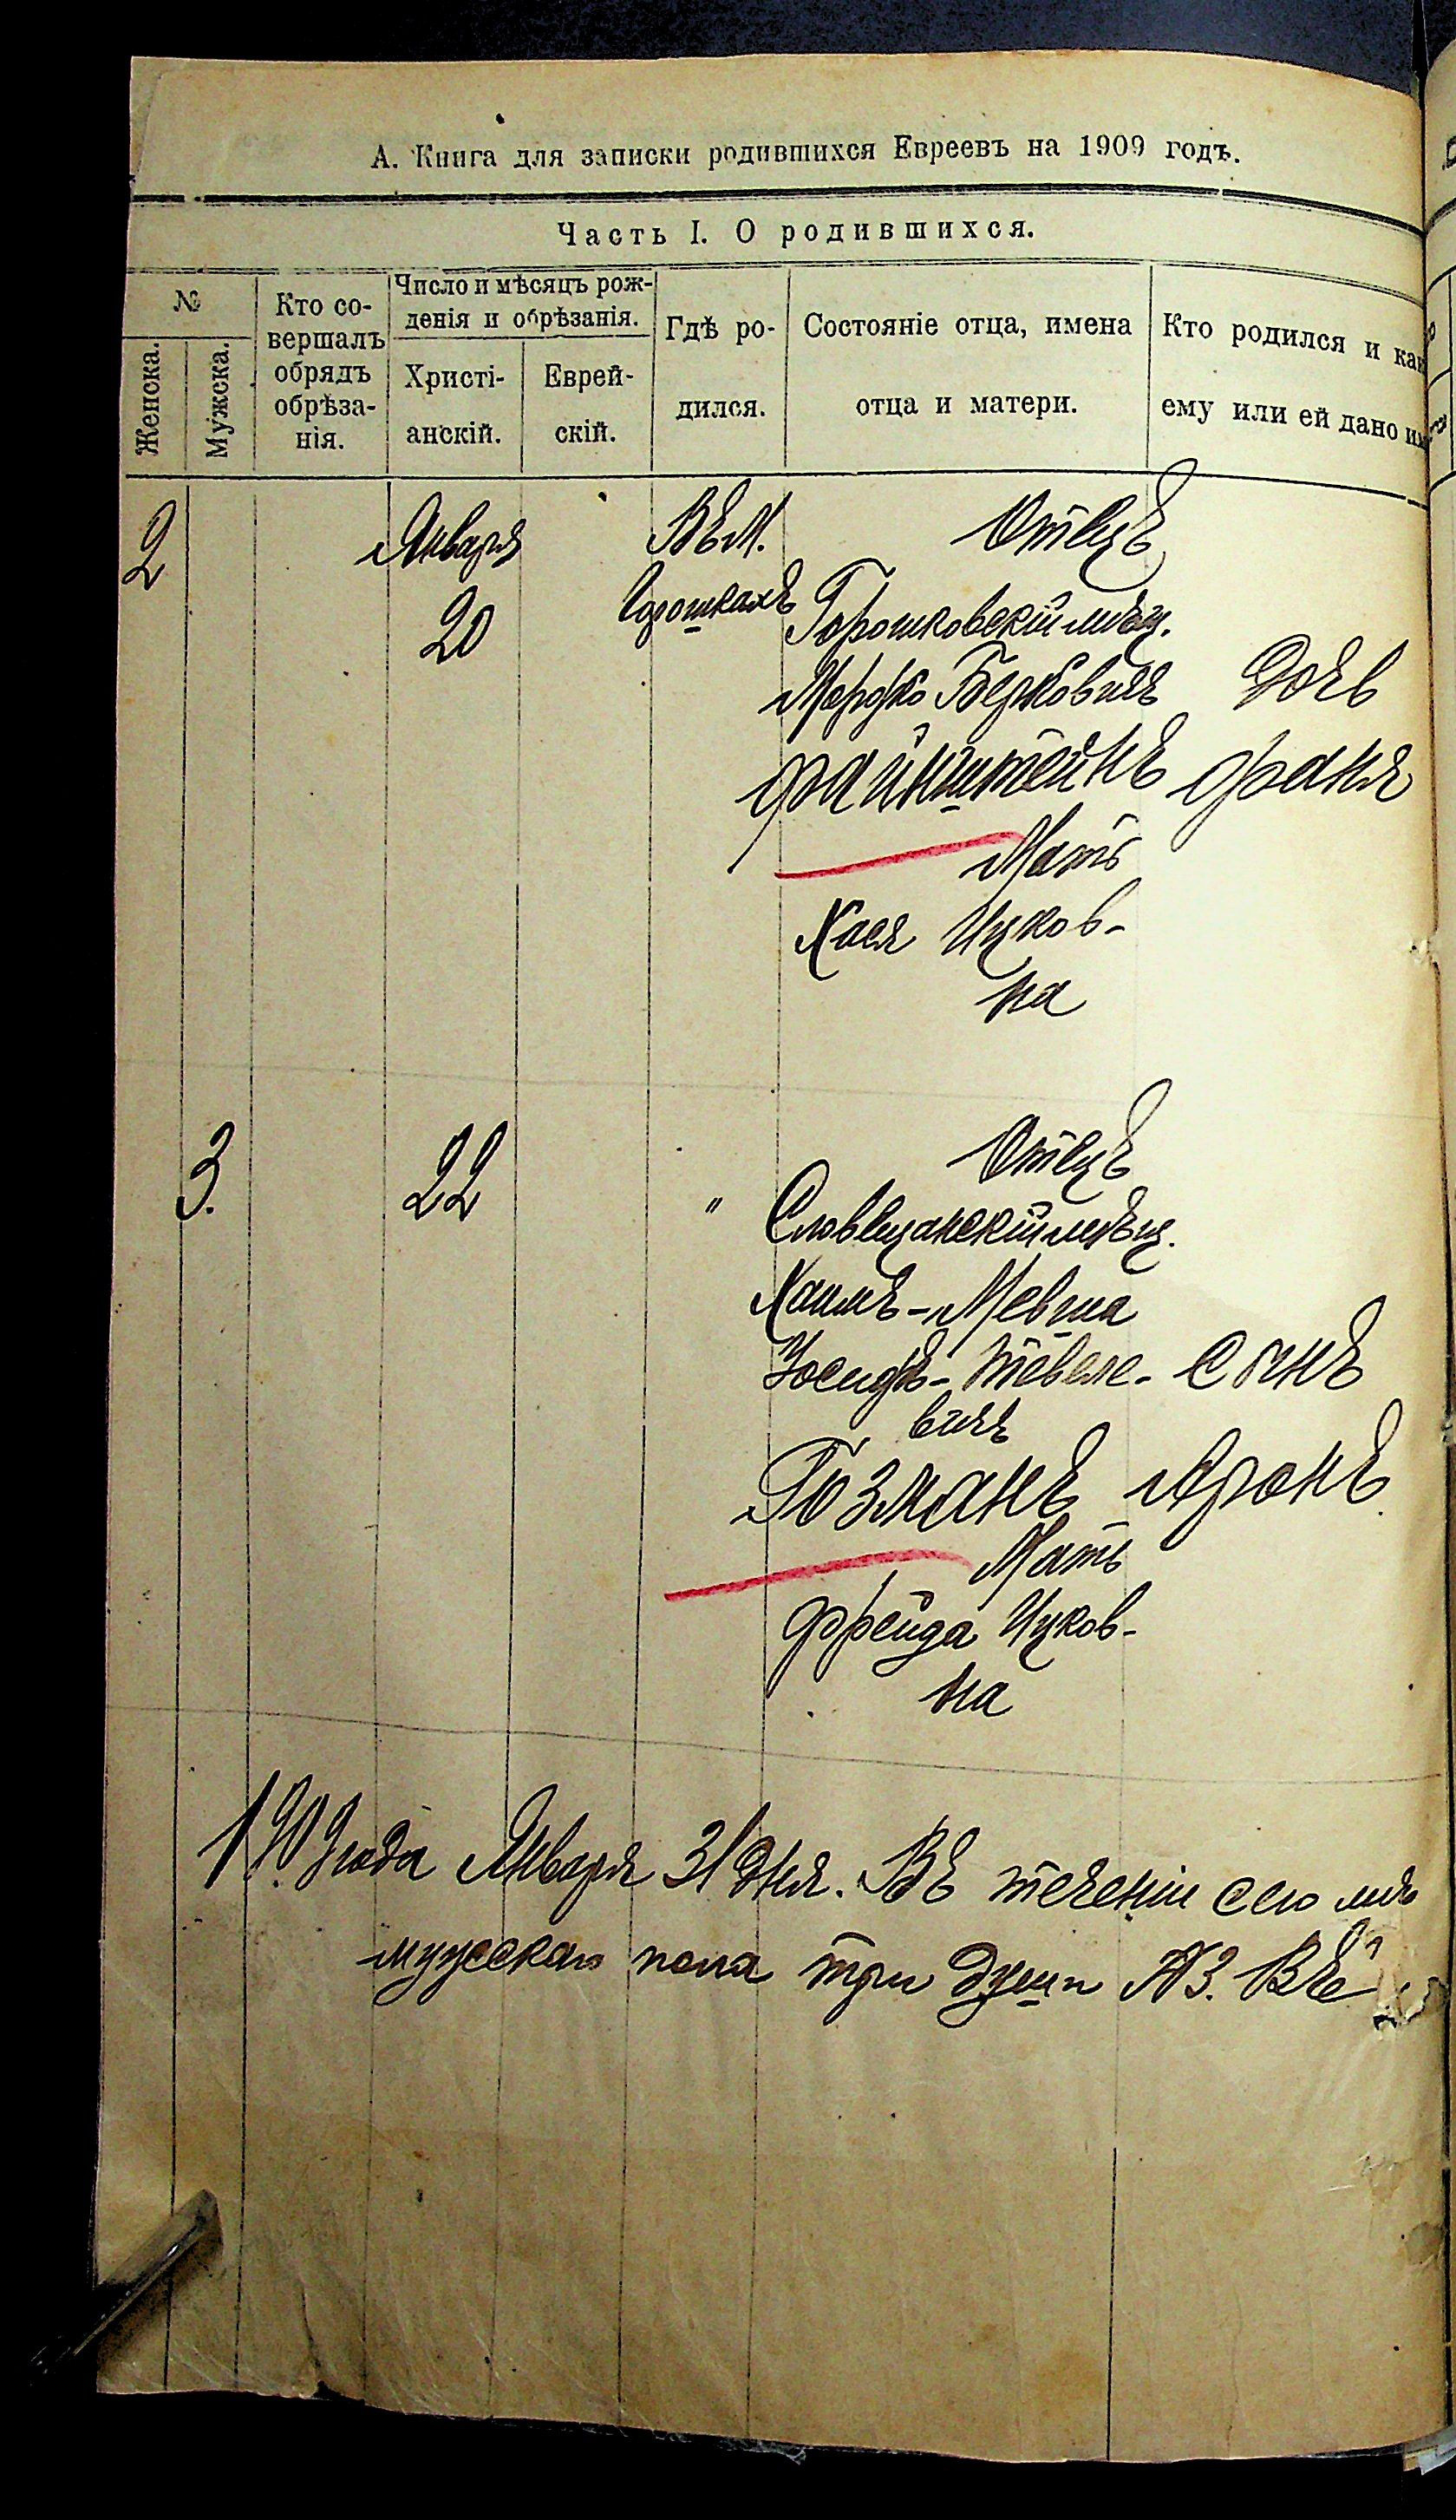 А. Книга для записки родившихся Евреевъ на 1909 годъ.
Часть I. О родившихся.
№
Женска.
Мужска.
Кто со-
вершалъ
обрядъ
обрѣза-
нія.
Число и мѣсяцъ рож-
денія и обрѣзанія.
Христі-
анскій.
Еврей-
скій.
Гдѣ ро-
дился.
Состояніе отца, имена
отца и матери.
Кто родился и как
ему или ей дано им
2
Января
20
Въ м.
Горошкахъ
Отецъ
Горошковскій мѣщ.
Мордко Берковичъ
Файнштейнъ
Мать
Хася Ицков-
на
Дочь
Фаня
3.
22
"
Отецъ
Словечанскій мѣщ.
Хаимъ-Мевша
Іосифъ-Тевеле-
вичъ
Гозманъ
Мать
Фрейда Ицков-
на
сынъ
Аронъ
1909 года Января 31 дня. Въ теченіи сего мѣ
мужескаго пола три души №3.